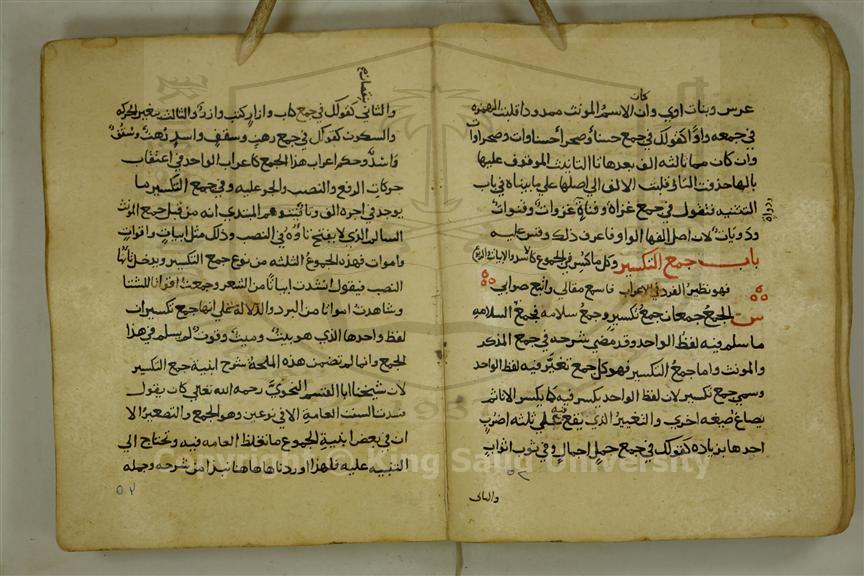 كان
عرس وبنات اوي وان الاسم المونث ممدودا قلبت الهمزه
في جمعه واوًا كقولك في جمع حسنا وصحرا حسناوات وصحراوات
وان كان مما ثالثه الف بعدها تا التانيث الموقوف عليها
بالها حذفت التا وقلبت الالف الي اصلها علي ما بيناه في باب
التثنيه فتقول في جمع غزاه وقناة غزوات وقنوات
ودويات لان اصل الفها الواو فاعرف ذلك وقس عليه
باب جمع التكسير وكل ما كسر في الجموع كالاسد والابيات والربوع
فهو نظير الفرد في الاعراب فاسمع مقالي واتبع صوابي
ش الجمع جمعان جمع تكسير وجمع سلامه فجمع السلامه
ما سلم فيه لفظ الواحد وقد مضي شرحه في جمع المذكر
والمونث واما جمع التكسير فهو كل جمع تغير فيه لفظ الواحد
وسمي جمع تكسير لان لفظ الواحد يكسر فيه كما يكسر الانا ثم
يصاغ صيغه اخري والتغيير الذي يقع فيه علي ثلثه اضرب
احدها بزياده كقولك في جمع حمل احمال وفي ثوب اثواب
والثاني
بنقصان صح
والثاني كقولك في جمع كتاب وازار كتب وازر والثالث بتغير الحركه
والسكون كقولك في جمع رهن وسقف واسد رهن وسقف
واسد وحكم اعراب هذا الجمع كاعراب الواحد في اعتقاب
حركات الرفع والنصب والجر عليه وفي جمع التكسير ما
يوجد في اخره الف وتا فيتوهم المبتدي انه من قبل جمع المونث
السالم الذي لا يفتح تاوه في النصب وذلك مثل ابيات واقوات
واموات فهذه الجموع الثلثه من نوع جمع التكسير ويدخل تاها
النصب فيقول انشدت ابياتا من الشعر وجمعت اقواتا للشتا
وشاهدت امواتا من البرد والدلالة علي انها جمع تكسير ان
لفظ واحدها الذي هو بيت وميت وقوت لم يسلم في هذا
الجمع وانما لم تضمن هذه الملحة شرح ابنية جمع التكسير
لان شيخنا ابا القسم النحوي رحمه الله تعالي كان يقول
فسدت السنت العامة الا في نوعين وهو الجمع والتصغير الا
ان في بعض ابنية الجموع ما تغلط العامه فيه وتحتاج الي
التنبيه عليه فلهذا اوردنا هاهنا نبذا من شرحه وجمله
Copyright © King Saud University